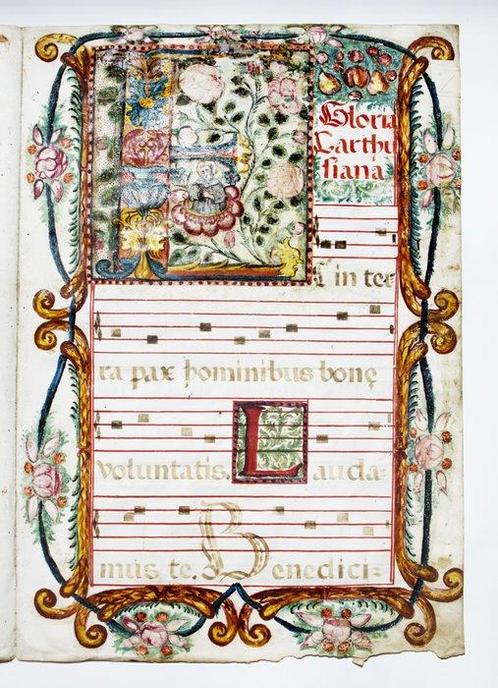 Gloria
Carthu
siana
Et in ter
ra pax hominibus bonę
voluntatis. Lauda=
mus te. Benedici=